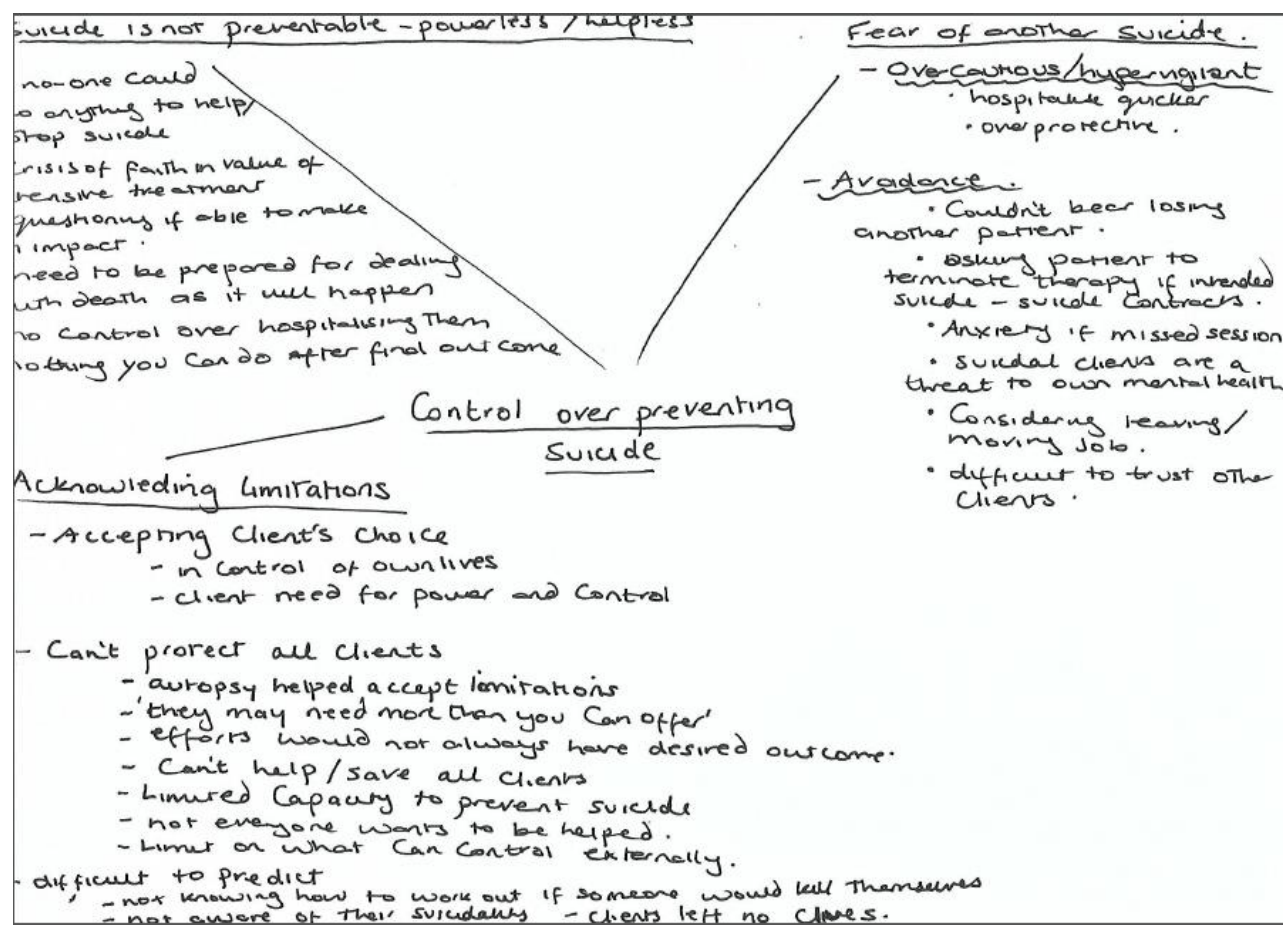 Suicide is not preventable - powerless / helpless
no-one could
o anything to help/
stop suicide
crisis of faith in value of
tensive treatment
questioning if able to make
n impact.
need to be prepared for dealing
with death as it will happen
no control over hospitalising them
nothing you can do after final outcome
Fear of another suicide.
- Overcautious/hypervigilant
• hospitalise quicker
• overprotective.
- Avoidance.
• Couldn't bear losing
another patient.
• asking patient to
terminate therapy if intended
suicide - suicide contracts.
• Anxiety if missed session
• suicidal clients are a
threat to own mental health
• Considering leaving/
moving job.
• difficult to trust other
clients.
Control over preventing
suicide
Acknowleding limitations
- Accepting Client's choice
- in control of own lives
- client need for power and control
- Can't protect all clients
- autopsy helped accept limitations
- 'they may need more than you can offer'
- efforts would not always have desired outcome.
- Can't help/save all clients
- Limited capacity to prevent suicide
- not everyone wants to be helped.
- Limit on what can control externally.
- difficult to predict
- not knowing how to work out if someone would kill themselves
- not aware of their suicidality - clients left no clues.